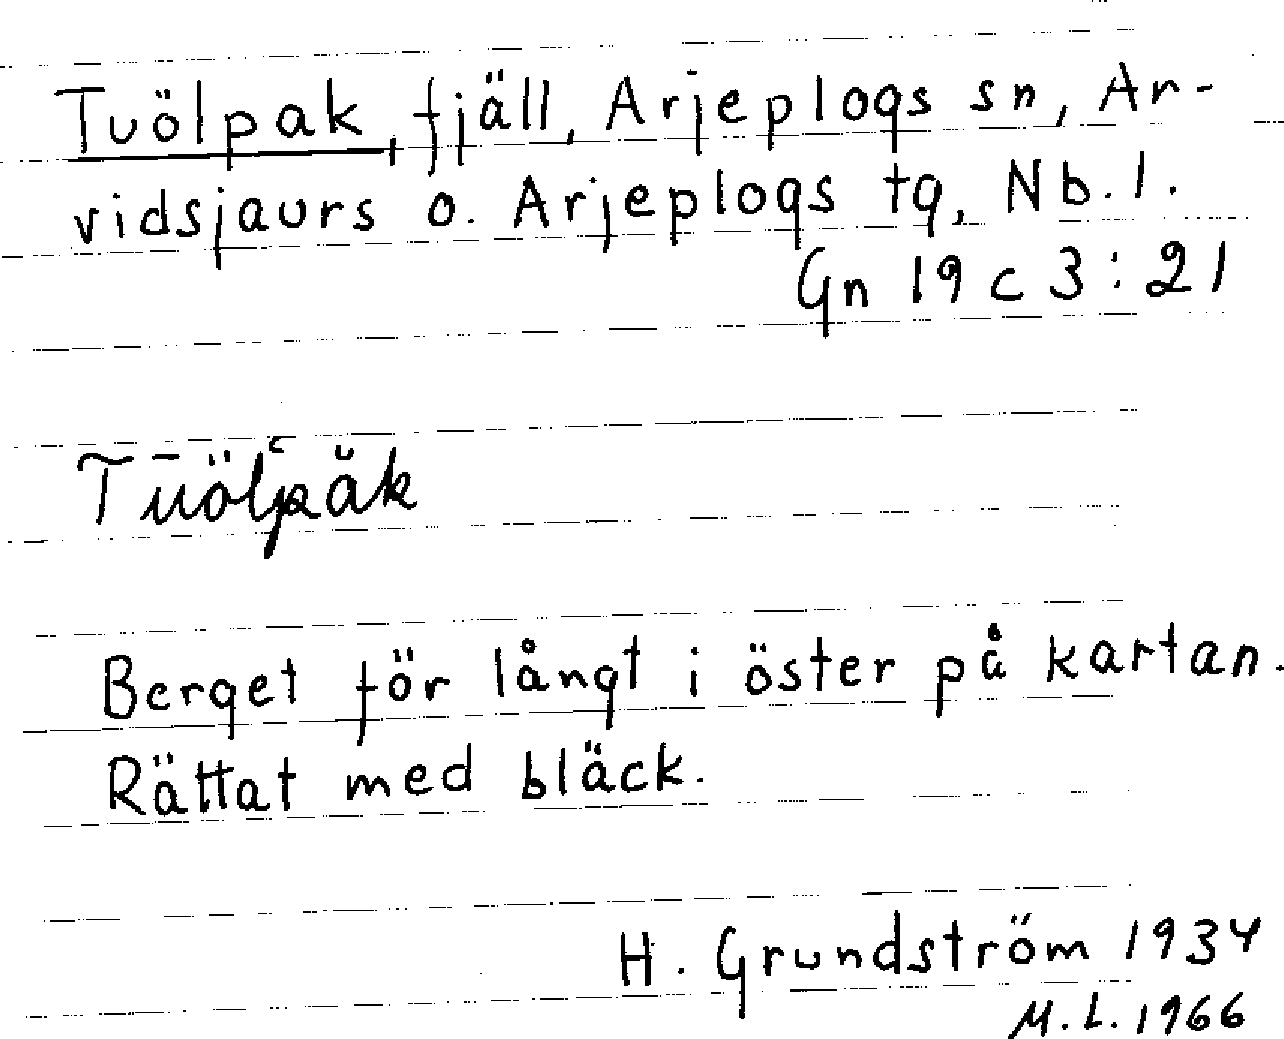 Tuölpak, fjäll, Arjeplogs sn, Ar-
vidsjaurs o. Arjeplogs tg, Nb. l.
Gn 19 c 3:21
Tūölpǎk
Berget för långt i öster på kartan.
Rättat med bläck.
H. Grundström 1934
M.L. 1966